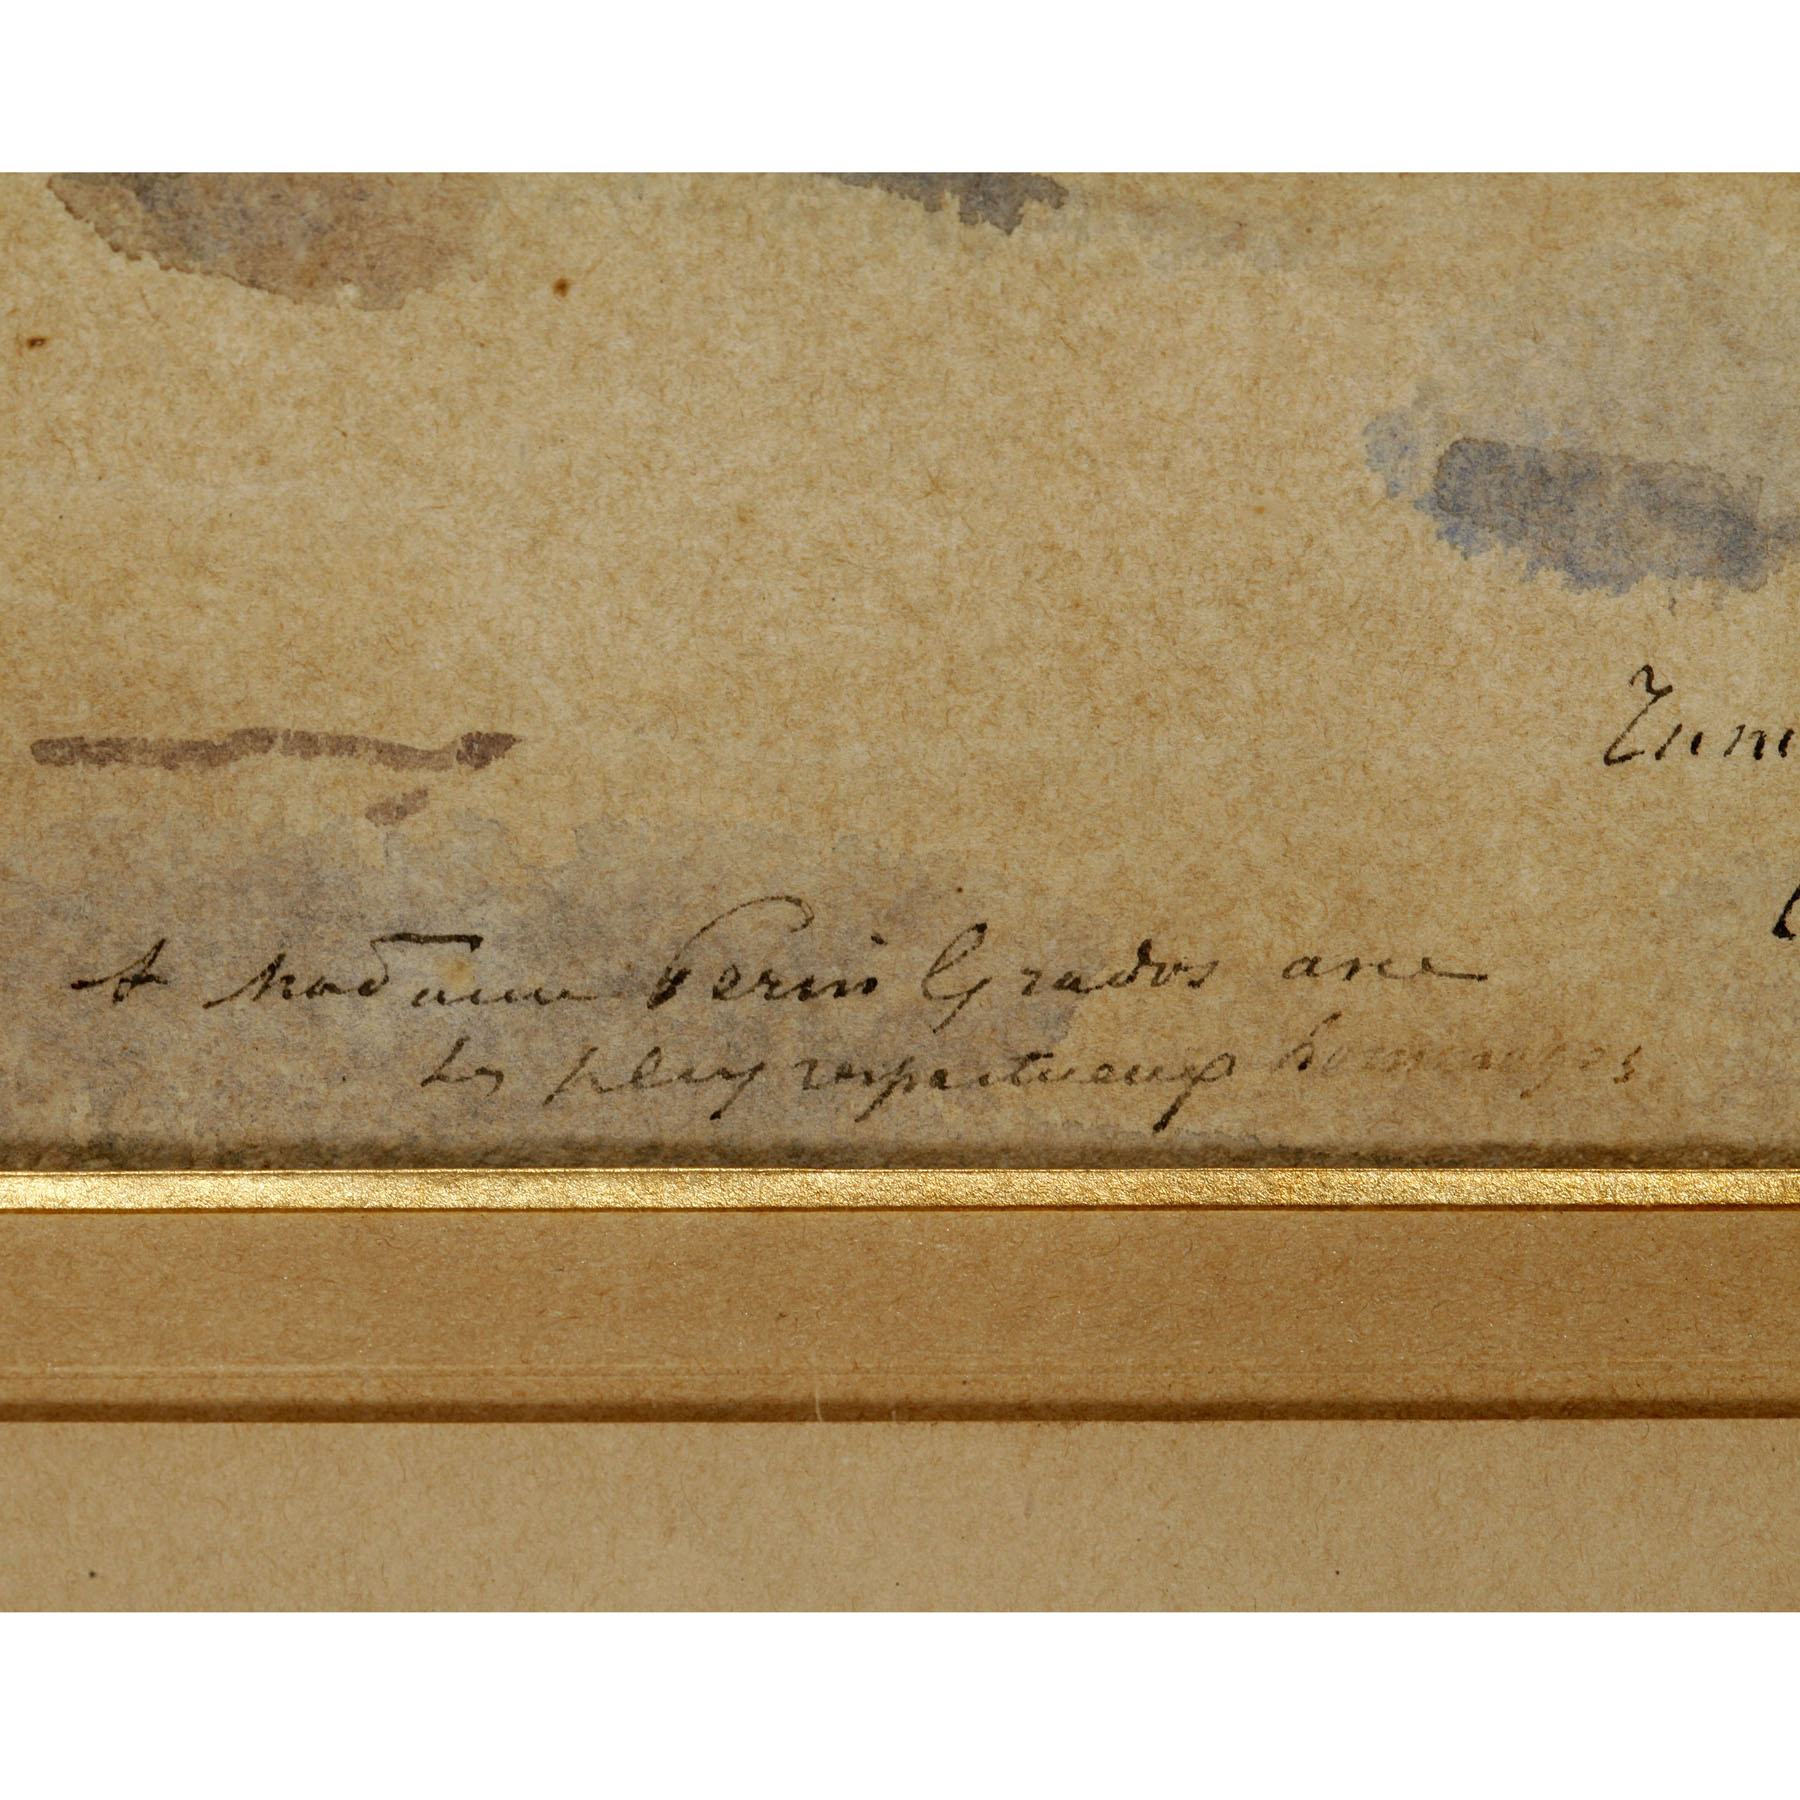 Tum
A Madame Perin Grados avec
les plus respectueux hommages